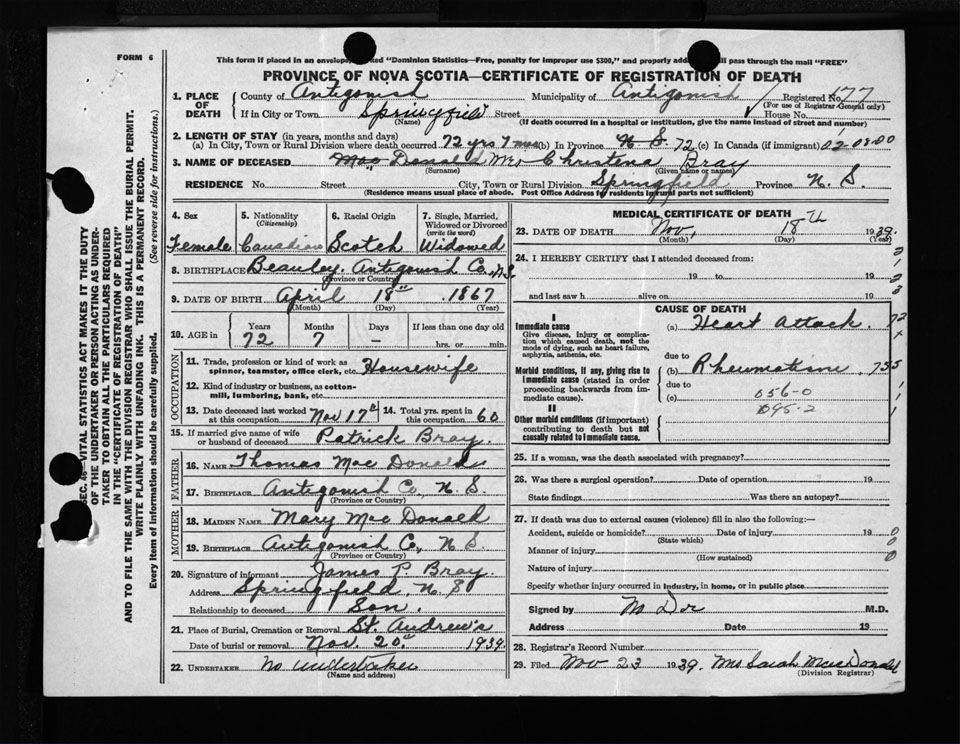 FORM 6
This form if placed in an envelope, marked "Dominion Statistics—Free, penalty for improper use $300," and properly addressed will pass through the mail "FREE"
PROVINCE OF NOVA SCOTIA—CERTIFICATE OF REGISTRATION OF DEATH
SEC. 46—VITAL STATISTICS ACT MAKES IT THE DUTY
OF THE UNDERTAKER OR PERSON ACTING AS UNDER-
TAKER TO OBTAIN ALL THE PARTICULARS REQUIRED
IN THE "CERTIFICATE OF REGISTRATION OF DEATH"
AND TO FILE THE SAME WITH THE DIVISION REGISTRAR WHO SHALL ISSUE THE BURIAL PERMIT.
WRITE PLAINLY WITH UNFADING INK. THIS IS A PERMANENT RECORD.
Every item of information should be carefully supplied. (See reverse side for instructions.)
1. PLACE OF DEATH County of Antigonish Municipality of Antigonish Registered No. 177
(For use of Registrar-General only)
If in City or Town Springfield Street House No.
(Name) (If death occurred in a hospital or institution, give the name instead of street and number)
2. LENGTH OF STAY (in years, months and days)
(a) In City, Town or Rural Division where death occurred 72 yrs 7 mos (b) In Province N. S. 72 (c) In Canada (if immigrant) 02-08.00
3. NAME OF DECEASED Mac Donald Mrs Christena Bray
(Surname) (Given name or names)
RESIDENCE No. Street City, Town or Rural Division Springfield Province N. S.
(Residence means usual place of abode. Post Office Address for residents in rural parts not sufficient)
4. Sex 5. Nationality (Citizenship) 6. Racial Origin 7. Single, Married, Widowed or Divorced (write the word)
Female Canadian Scotch Widowed
8. BIRTHPLACE Beauley Antigonish Co. N.S.
(Province or Country)
9. DATE OF BIRTH April 18th 1867
(Month) (Day) (Year)
10. AGE in Years Months Days If less than one day old
72 7 – hrs. or min.
OCCUPATION
11. Trade, profession or kind of work as spinner, teamster, office clerk, etc. Housewife
12. Kind of industry or business, as cotton-mill, lumbering, bank, etc.
13. Date deceased last worked at this occupation Nov 17th 14. Total yrs. spent in this occupation 60
15. If married give name of wife or husband of deceased Patrick Bray
FATHER
16. NAME Thomas Mac Donald
17. BIRTHPLACE Antigonish Co, N. S
(Province or Country)
MOTHER
18. MAIDEN NAME Mary Mac Donald
19. BIRTHPLACE Antigonish Co, N. S.
(Province or Country)
20. Signature of informant James P. Bray
Address Springfield, N. S
Relationship to deceased Son.
21. Place of Burial, Cremation or Removal St. Andrew's
Date of burial or removal Nov. 20th 1939
22. UNDERTAKER No Undertaker
(Name and address)
MEDICAL CERTIFICATE OF DEATH
23. DATE OF DEATH Nov. 18th 1939.
(Month) (Day) (Year)
24. I HEREBY CERTIFY that I attended deceased from:
19 to 19
and last saw h alive on 19
CAUSE OF DEATH
I
Immediate cause
Give disease, injury or complication which caused death, not the mode of dying, such as heart failure, asphyxia, asthenia, etc.
(a) Heart Attack.
due to
Morbid conditions, if any, giving rise to immediate cause (stated in order proceeding backwards from immediate cause).
(b) Rheumatism.
due to
(c) 056-0
095-2
II
Other morbid conditions (if important) contributing to death but not causally related to immediate cause.
25. If a woman, was the death associated with pregnancy?
26. Was there a surgical operation? Date of operation 19
State findings Was there an autopsy?
27. If death was due to external causes (violence) fill in also the following:—
Accident, suicide or homicide? Date of injury 19 0
(State which)
Manner of injury 0
(How sustained)
Nature of injury 0
Specify whether injury occurred in industry, in home, or in public place
Signed by No Dr M.D.
Address Date 19
28. Registrar's Record Number
29. Filed Nov 23 1939. Mrs Sarah MacDonald
(Division Registrar)